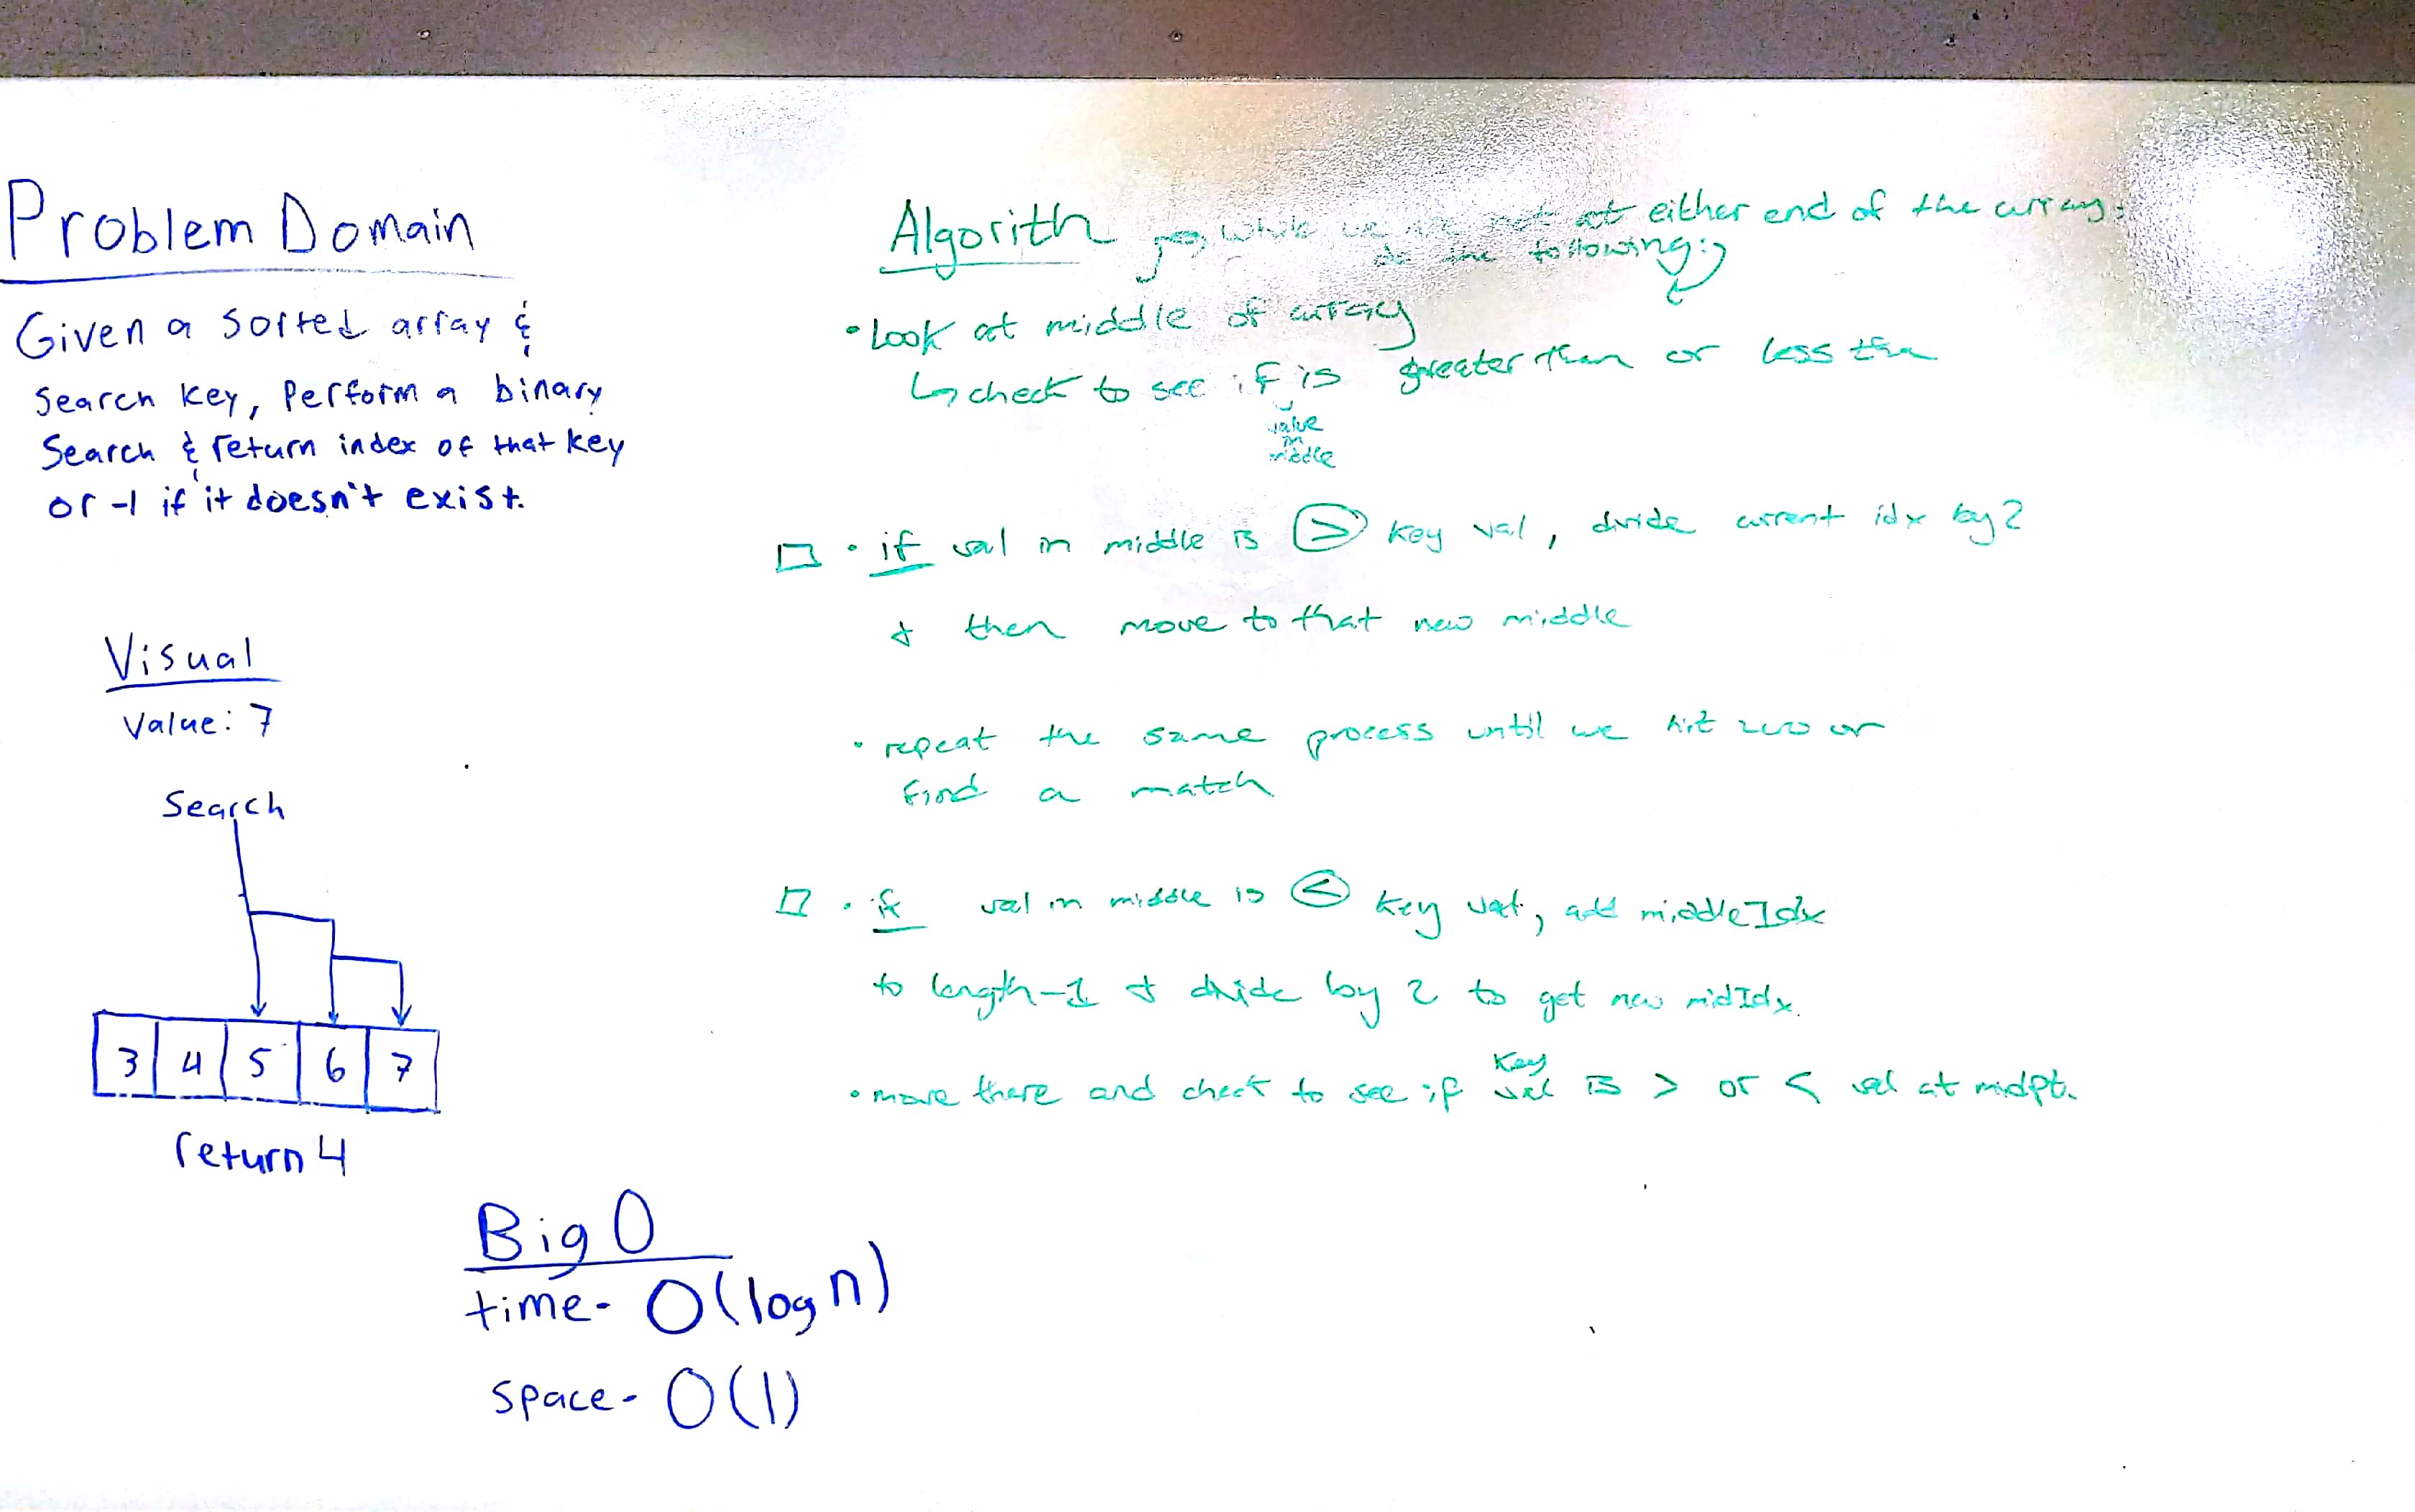 Problem Domain
Given a sorted array &
Search key, Perform a binary
Search & return index of that key
or -1 if it doesn't exist.
Visual
Value: 7
Search
3 4 5 6 7
return 4
Big O
time - O(log n)
space - O(1)
Algorith
while we are not at either end of the array,
do the following:
• Look at middle of array
↳ check to see if is greater than or less than
value
in
middle
• if val in middle is > key val, divide current idx by 2
& then move to that new middle
• repeat the same process until we hit zero or
find a match
• if val in middle is < key val, add middleIdx
to length-1 & divide by 2 to get new midIdx.
• move there and check to see if key val is > or < val at midpt.